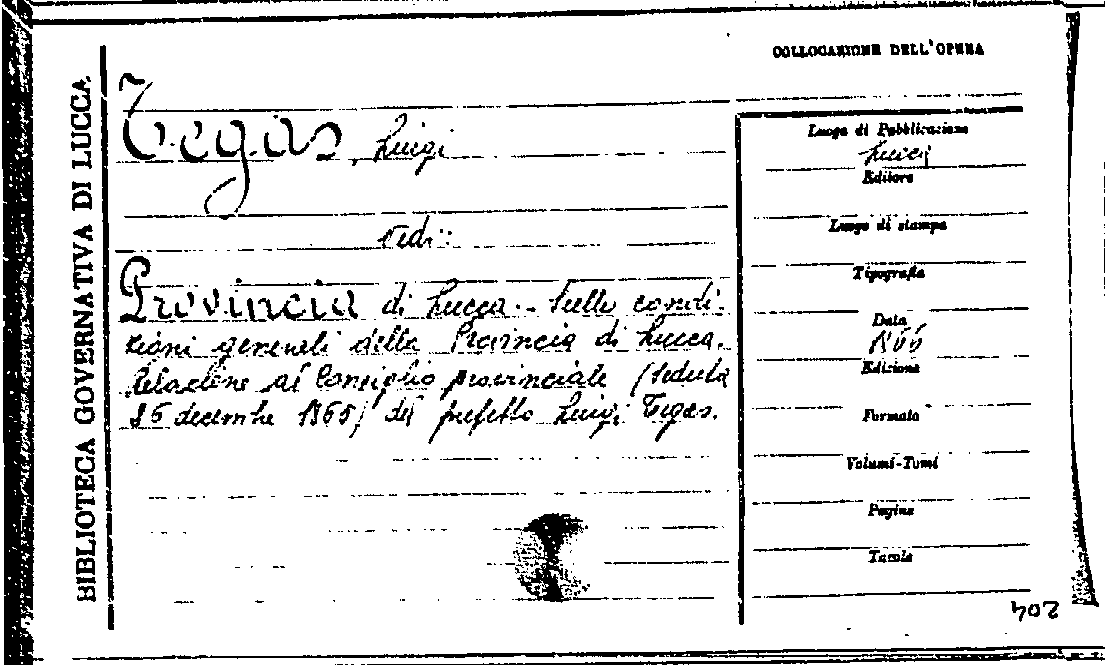 BIBLIOTECA GOVERNATIVA DI LUCCA
COLLOCAZIONE DELL'OPERA
Tegas, Luigi
vedi:
Provincia di Lucca - Sulle condi-
zioni generali della Provincia di Lucca.
Relazione al Consiglio provinciale (seduta
26 decembre 1865) del prefetto Luigi Tegas.
Luogo di Pubblicazione
Lucca
Editore
Luogo di stampa
Tipografia
Data
1866
Edizione
Formato
Volumi-Tomi
Pagine
Tavole
204